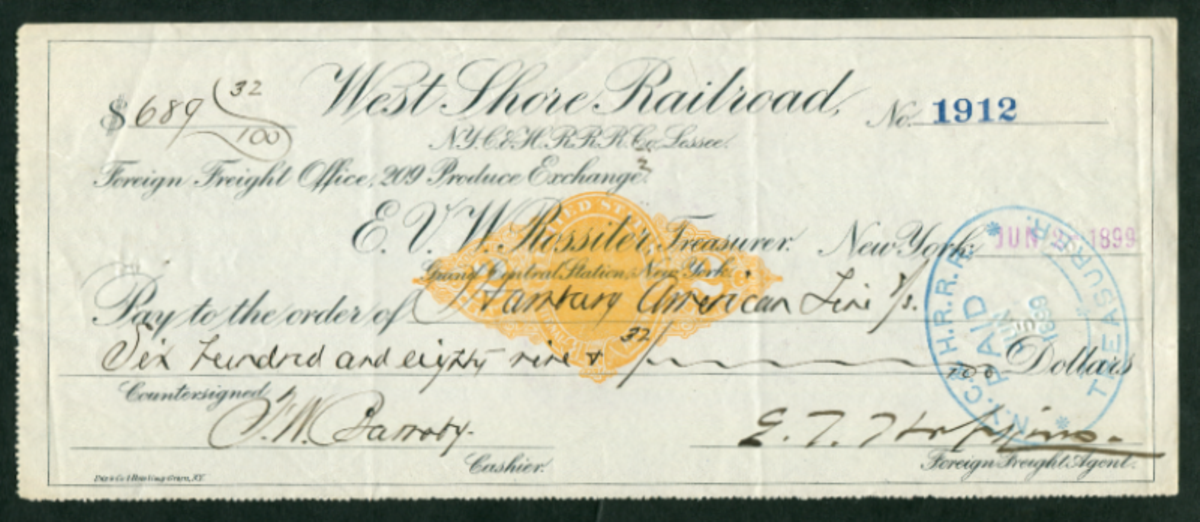 $689 32/100
West Shore Railroad,
No. 1912
N.Y.C.& H.R.R.R. Co. Lessee.
Foreign Freight Office, 209 Produce Exchange.
E. V. W. Rossiter, Treasurer.
New York, JUN 1899
Grand Central Station, New York.
Pay to the order of Hamburg American Line
Six hundred and eighty nine & 32/100 Dollars
Countersigned,
Cashier.
E. T. Hopkins.
Foreign Freight Agent.
UNITED STATES
N.Y.C. & H.R.R.R. TREASURER
PAID
JUN
1899